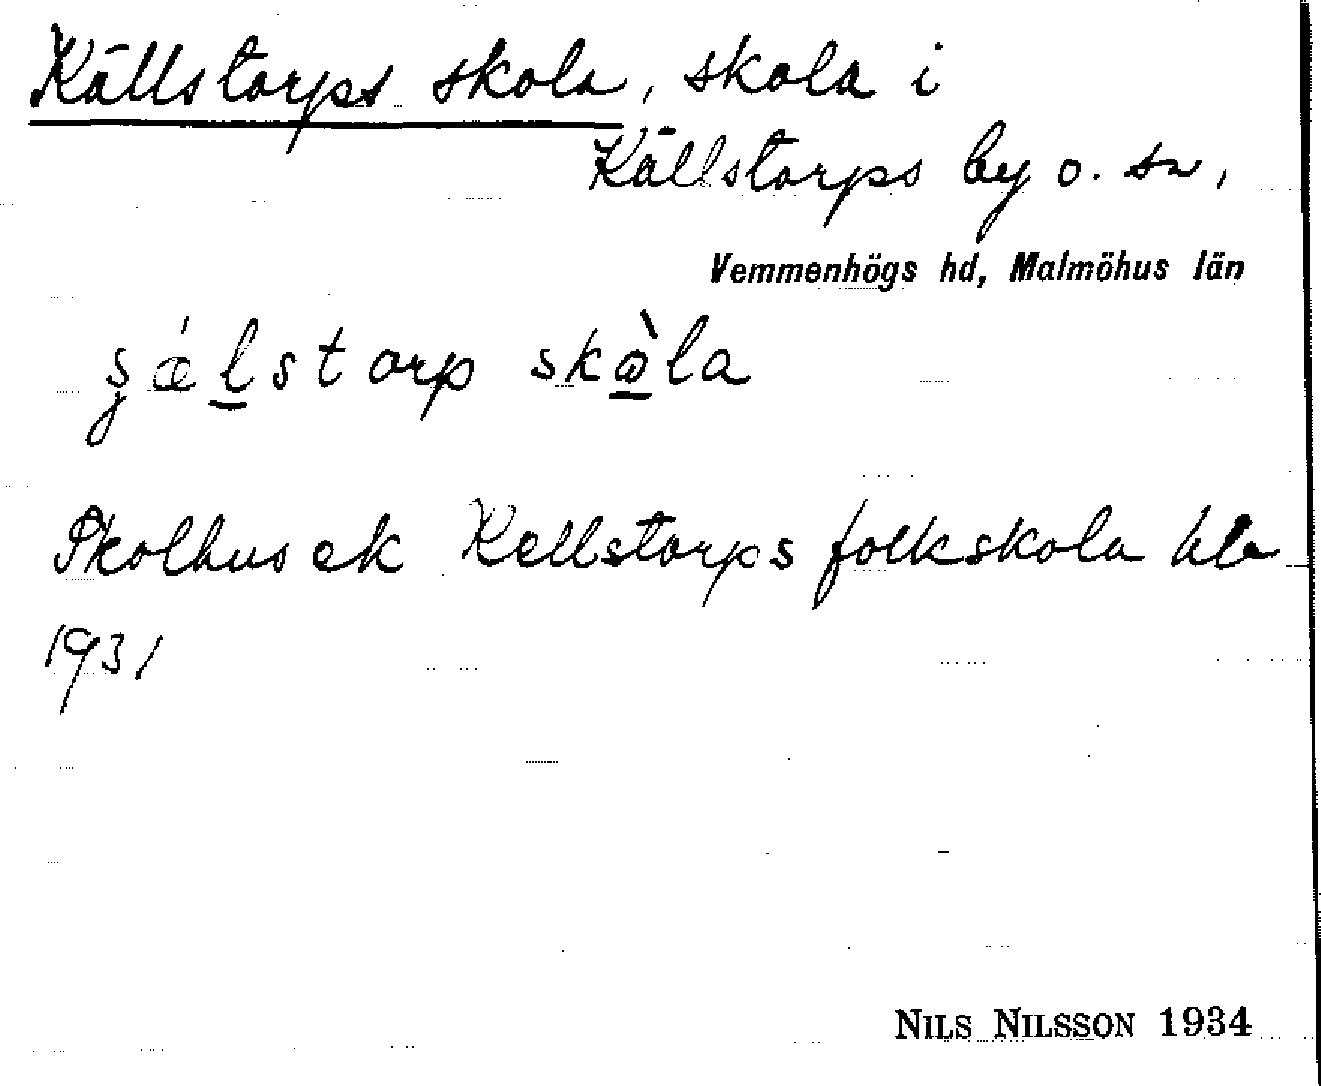 Källstorps skola, skola i
Källstorps by o. sn,
Vemmenhögs hd, Malmöhus län
ʂǽl̲storp skò̲la
Skolhus ek Kellstorps folkskola bla
1931
NILS NILSSON 1934